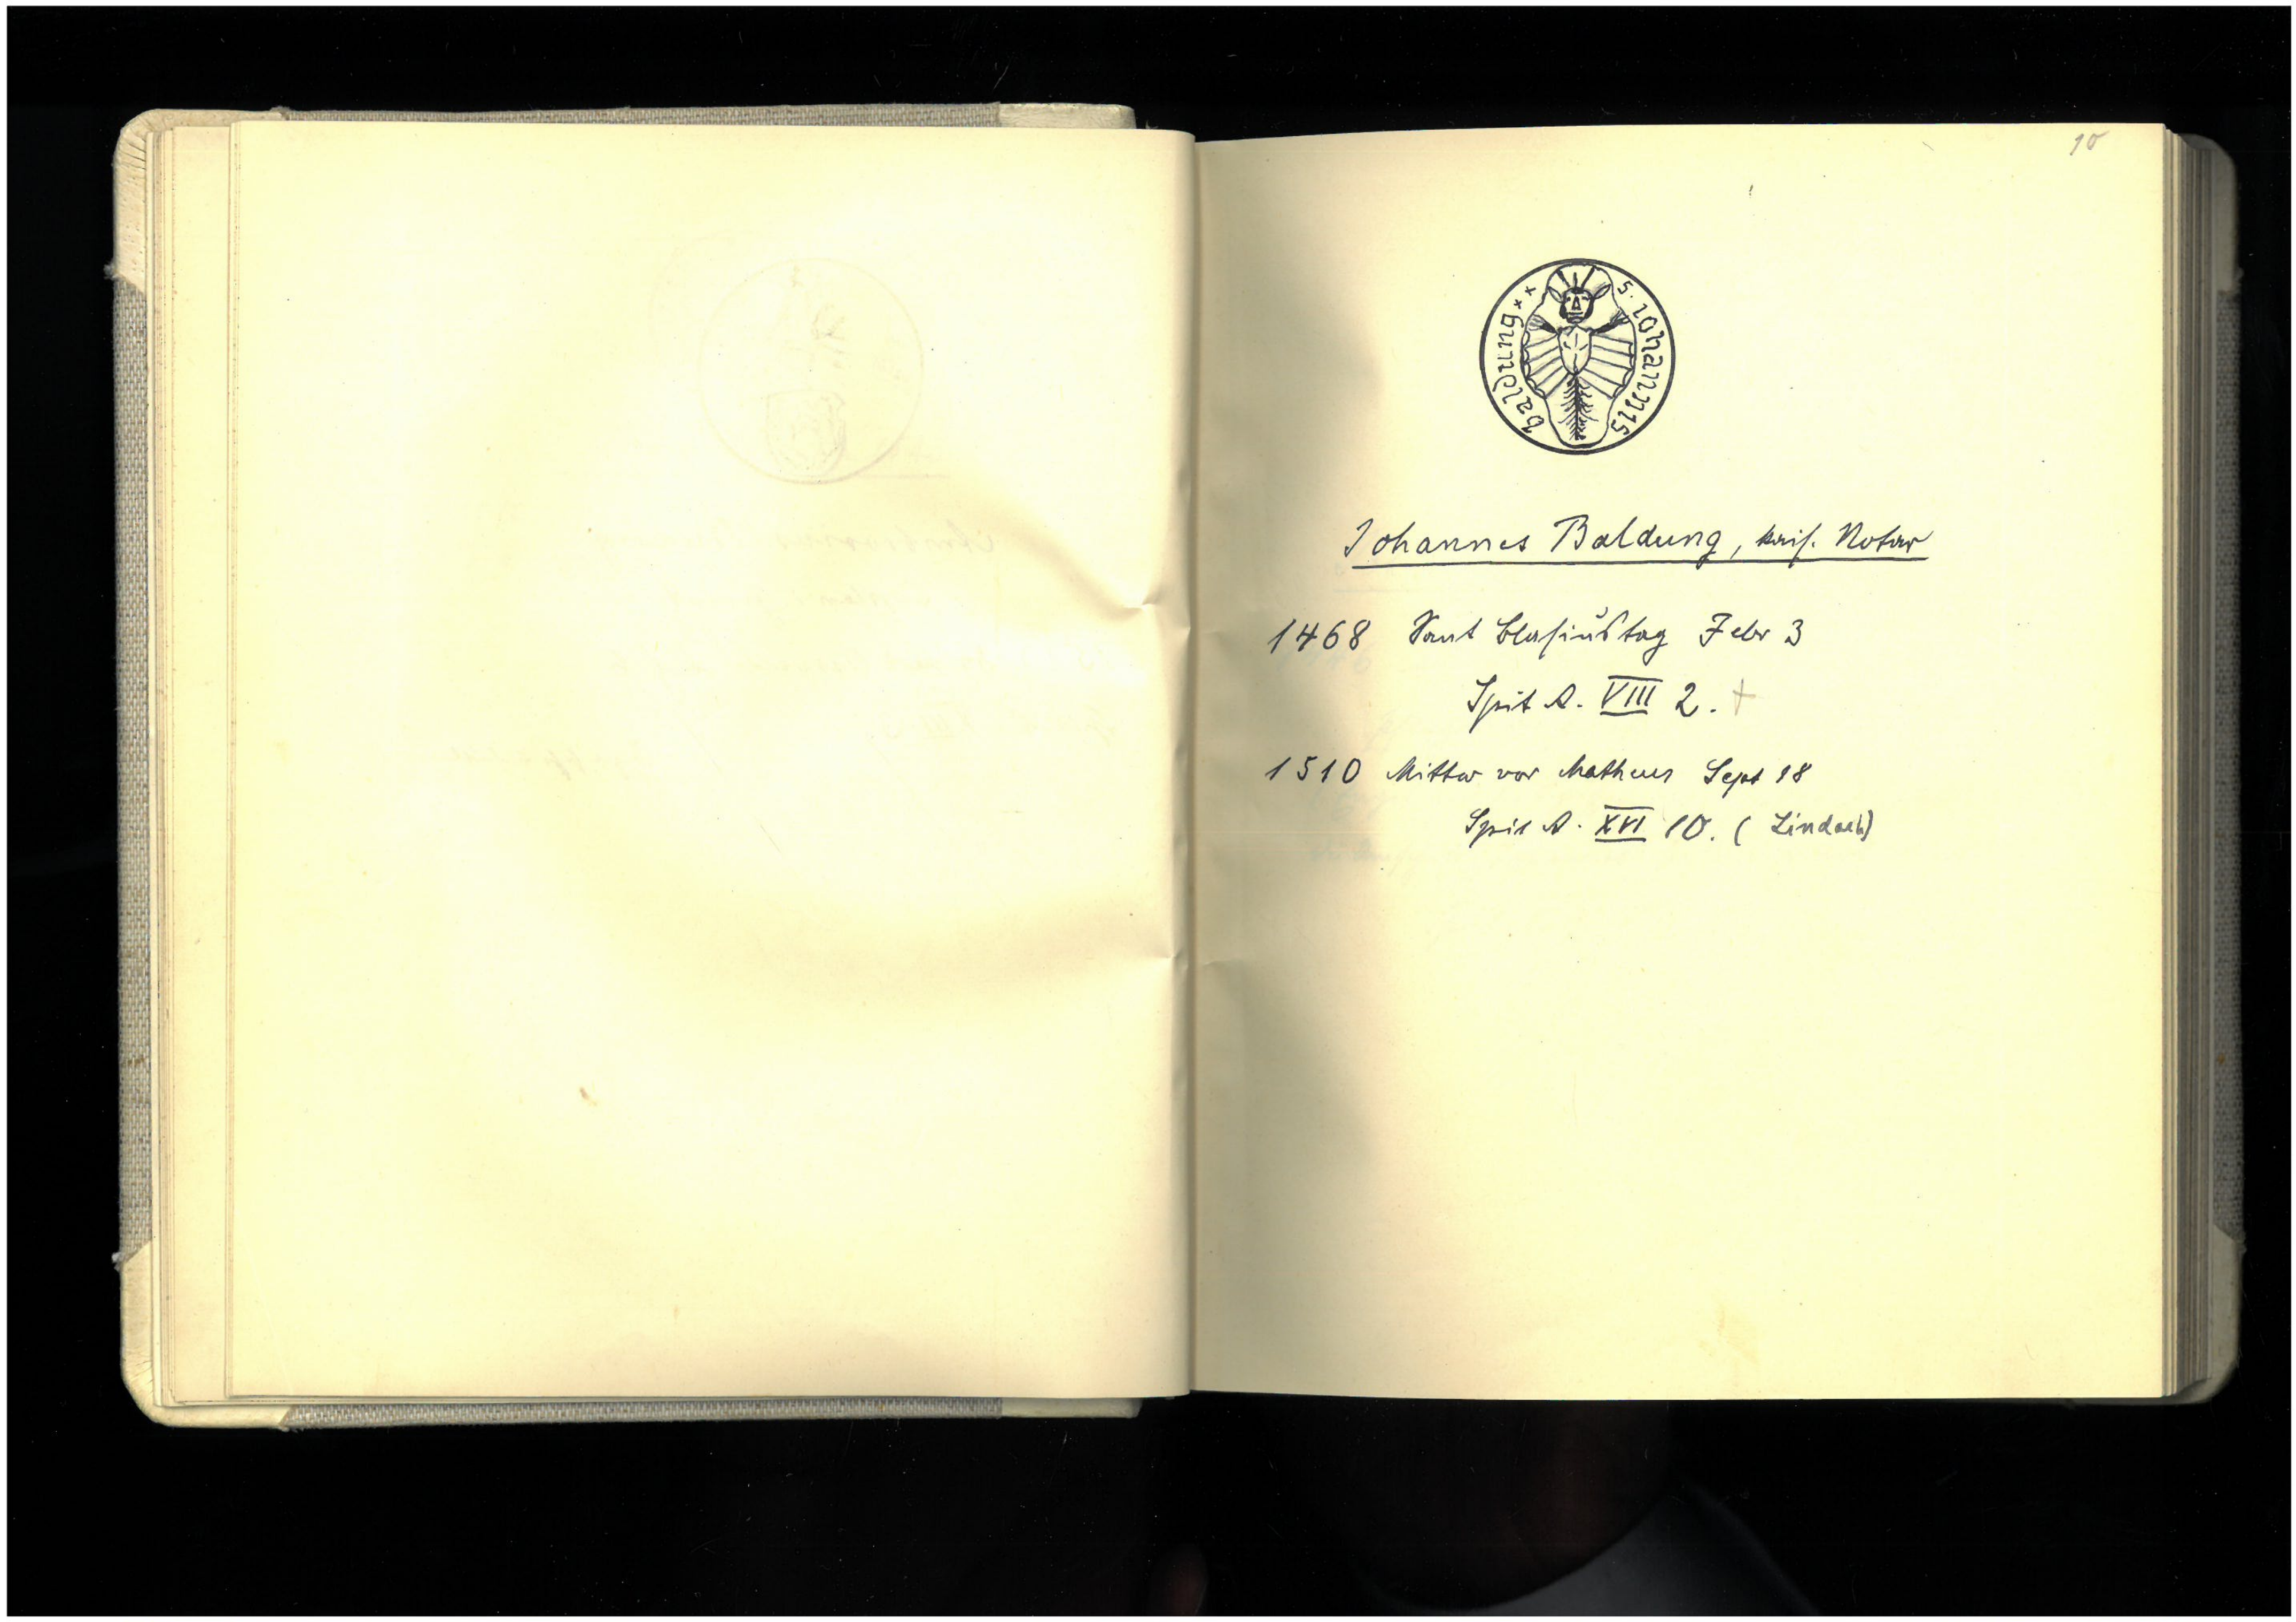 10
S. iohannis baldung
Johannes Baldung, kais. Notar
1468 Sant Blasiustag Febr 3
Spit A. VIII 2. +
1510 Mittw vor Matheus Sept 18
Spit A. XVI 10. (Lindach)